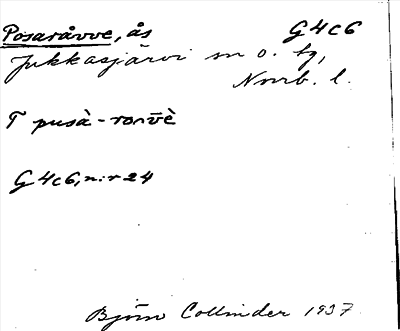 Posaråvve, ås G4c6
Jukkasjärvi sn o. tg,
Norrb. l.
T pusà-ronv̄è
G4c6, n:r 24
Björn Collinder 1937